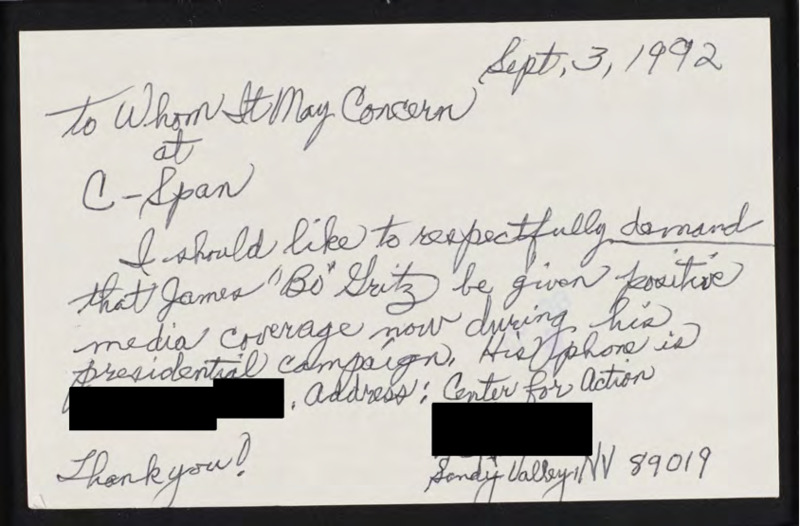 Sept. 3, 1992
to Whom It May Concern
at
C-Span
I should like to respectfully demand
that James "Bo" Gritz be given positive
media coverage now during his
presidential campaign. His phone is
. Address: Center for Action
Sandy Valley, NV 89019
Thank you!